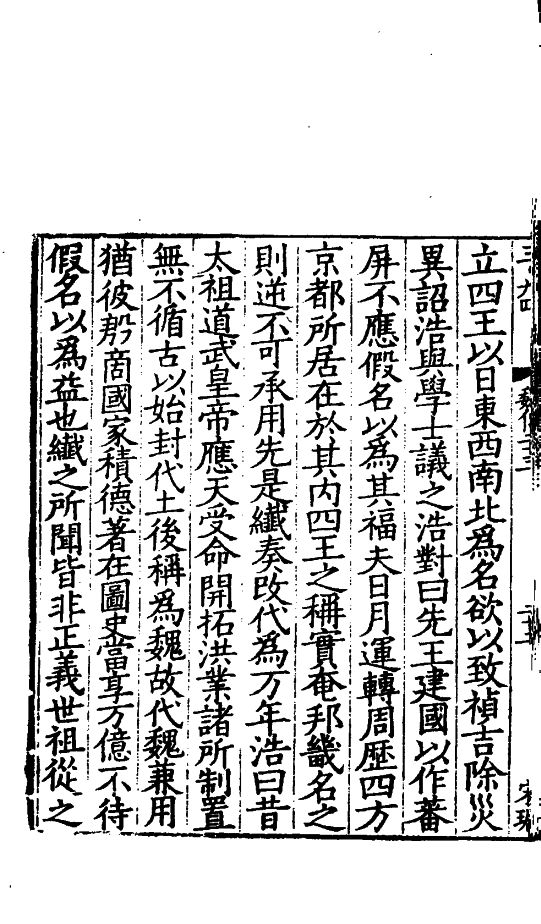 立四王以日東西南北爲名欲以致禎吉除災
異詔浩與學士議之浩對曰先王建國以作蕃
屏不應假名以爲其福夫日月運轉周歷四方
京都所居在於其内四王之稱實奄邦畿名之
則逆不可承用先是纖奏改代爲万年浩曰昔
太祖道武皇帝應天受命開拓洪業諸所制置
無不循古以始封代土後稱爲魏故代魏兼用
猶彼殷商國家積德著在圖史當享万億不待
假名以爲益也纖之所聞皆非正義世祖從之